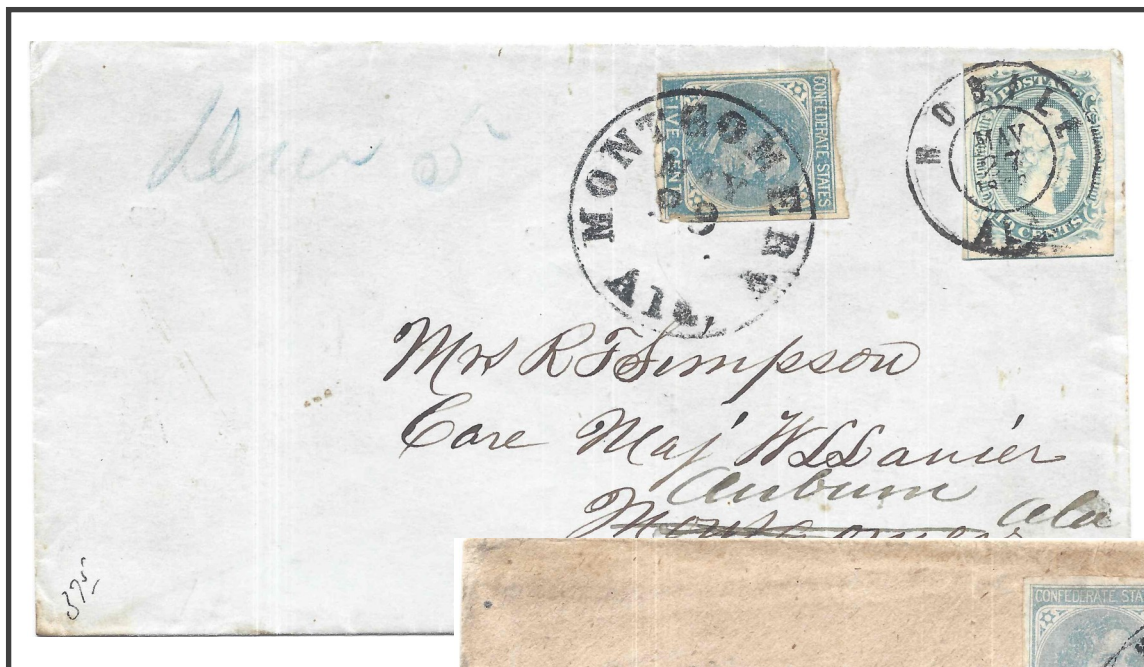 CONFEDERATE STATES
FIVE CENTS
MONTGOMERY
MAY
9
Ala.
MOBILE
MAY
ALA
POSTAGE
CENTS
Mrs R F Simpson
Care Maj W L Lanier
Auburn
Montgomery Ala
375
CONFEDERATE STA